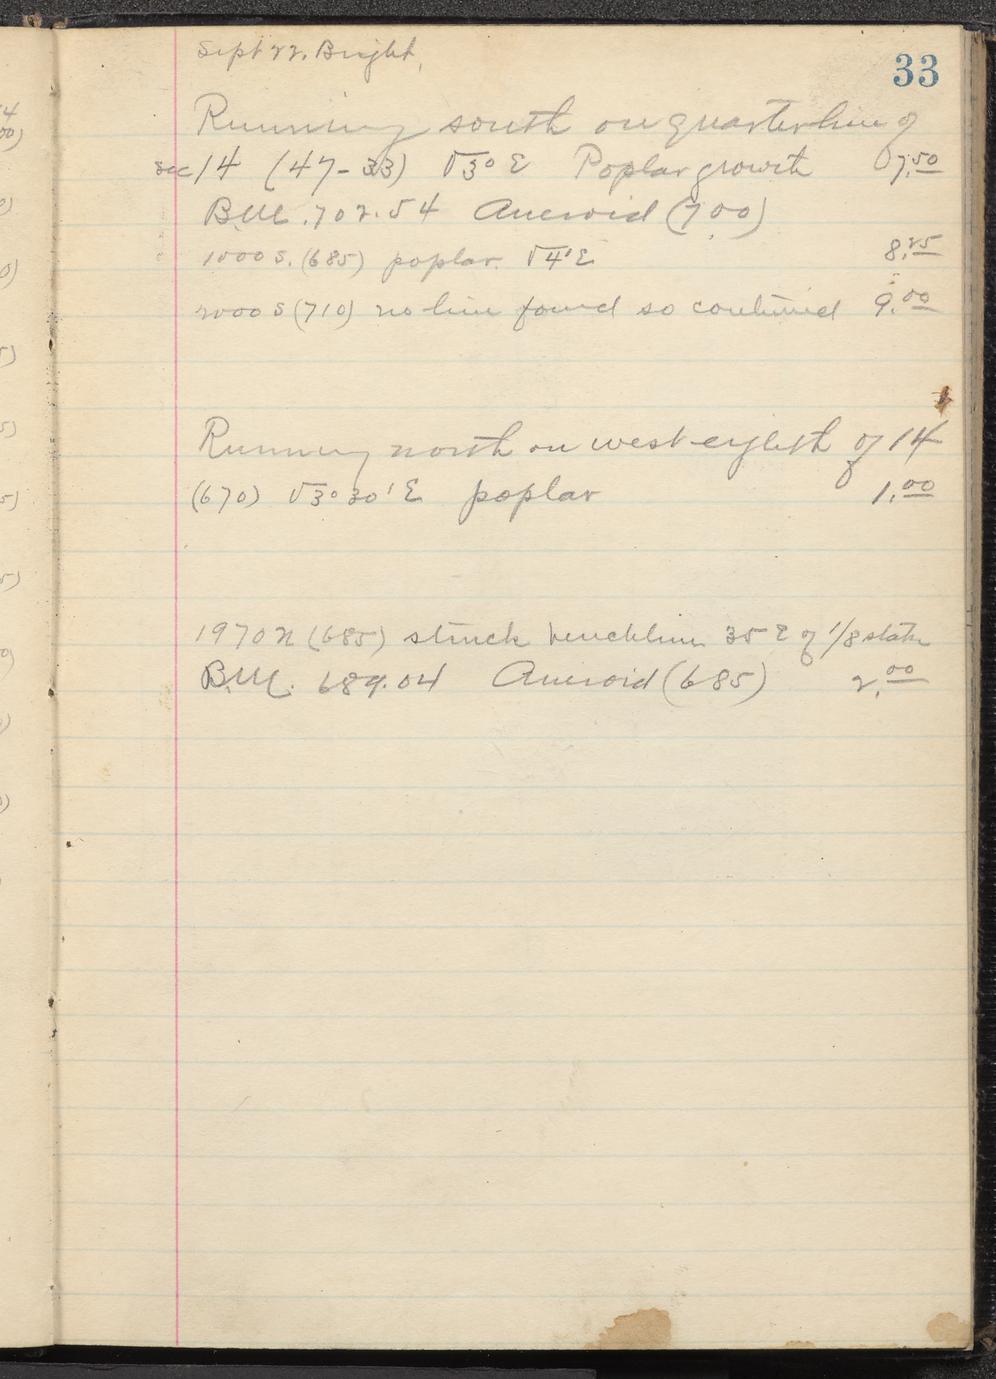 Sept 22. Bright.
33
Running south on quarter line of
Sec 14 (47-33) V 3° E Poplar growth 7.50
B.M. 702.54 Aneroid (700)
1000 S. (685) poplar. V 4° E 8.25
2000 S (710) no line found so continued 9.00
Running north on west eighth of 14
(670) V 3° 30' E poplar 1.00
1970 N (685) struck benchline 35 E of 1/8 stake
B.M. 689.04 Aneroid (685) 2.00